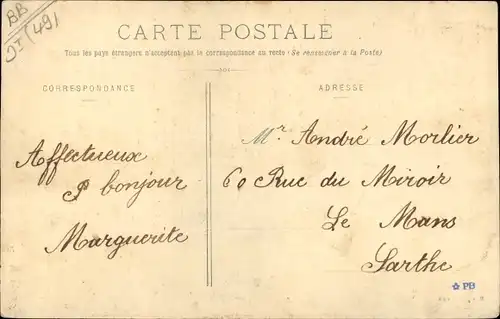 BB
(49)
CARTE POSTALE
Tous les pays étrangers n'acceptent pas la correspondance au recto (Se renseigner à la Poste)
CORRESPONDANCE
ADRESSE
Affectueux
bonjour
Marguerite
Mr André Morlier
60 Rue du Miroir
Le Mans
Sarthe
PB